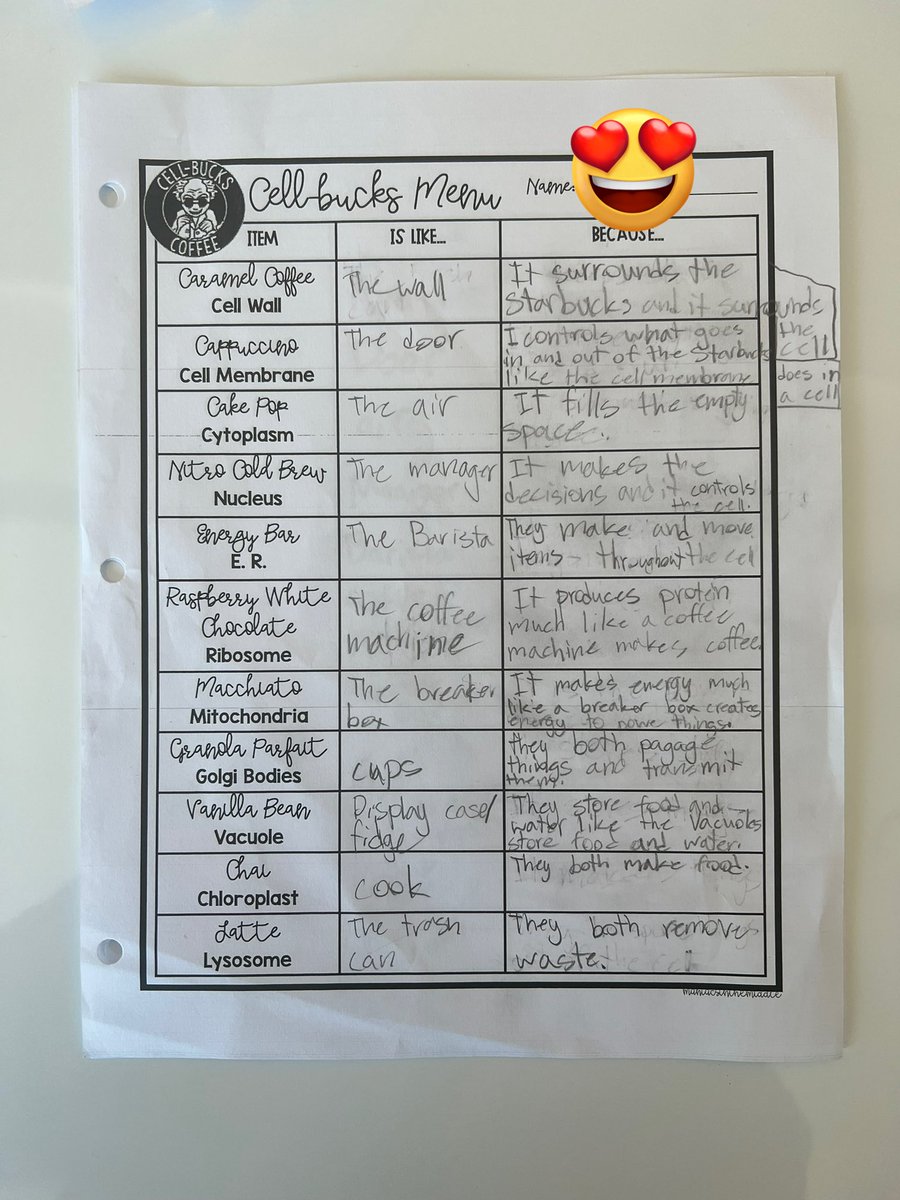 CELL-BUCKS
COFFEE
Cell-bucks Menu
Name:
ITEM
IS LIKE...
BECAUSE...
Caramel Coffee
Cell Wall
The wall
It surrounds the
Starbucks and it surrounds
the
cell
Cappuccino
Cell Membrane
The door
I controls what goes
in and out of the Starbucks
like the cell membrane
does in
a cell
Cake Pop
Cytoplasm
The air
It fills the empty
space.
Nitro Cold Brew
Nucleus
The manager
It makes the
decisions and it controls
the cell.
Energy Bar
E. R.
The Barista
They make and move
items throughout the cell
Raspberry White
Chocolate
Ribosome
The coffee
machine
It produces protein
much like a coffee
machine makes coffee.
Macchiato
Mitochondria
The breaker
box
It makes energy much
like a breaker box creates
energy to powe things.
Granola Parfait
Golgi Bodies
cups
they both pagage
things and transmit
them.
Vanilla Bean
Vacuole
Display case/
fidge
They store food and
water like the Vacuoles
store food and water.
Chai
Chloroplast
cook
They both make food.
Latte
Lysosome
The trash
can
They both removes
waste.
maniacsinthemiddle